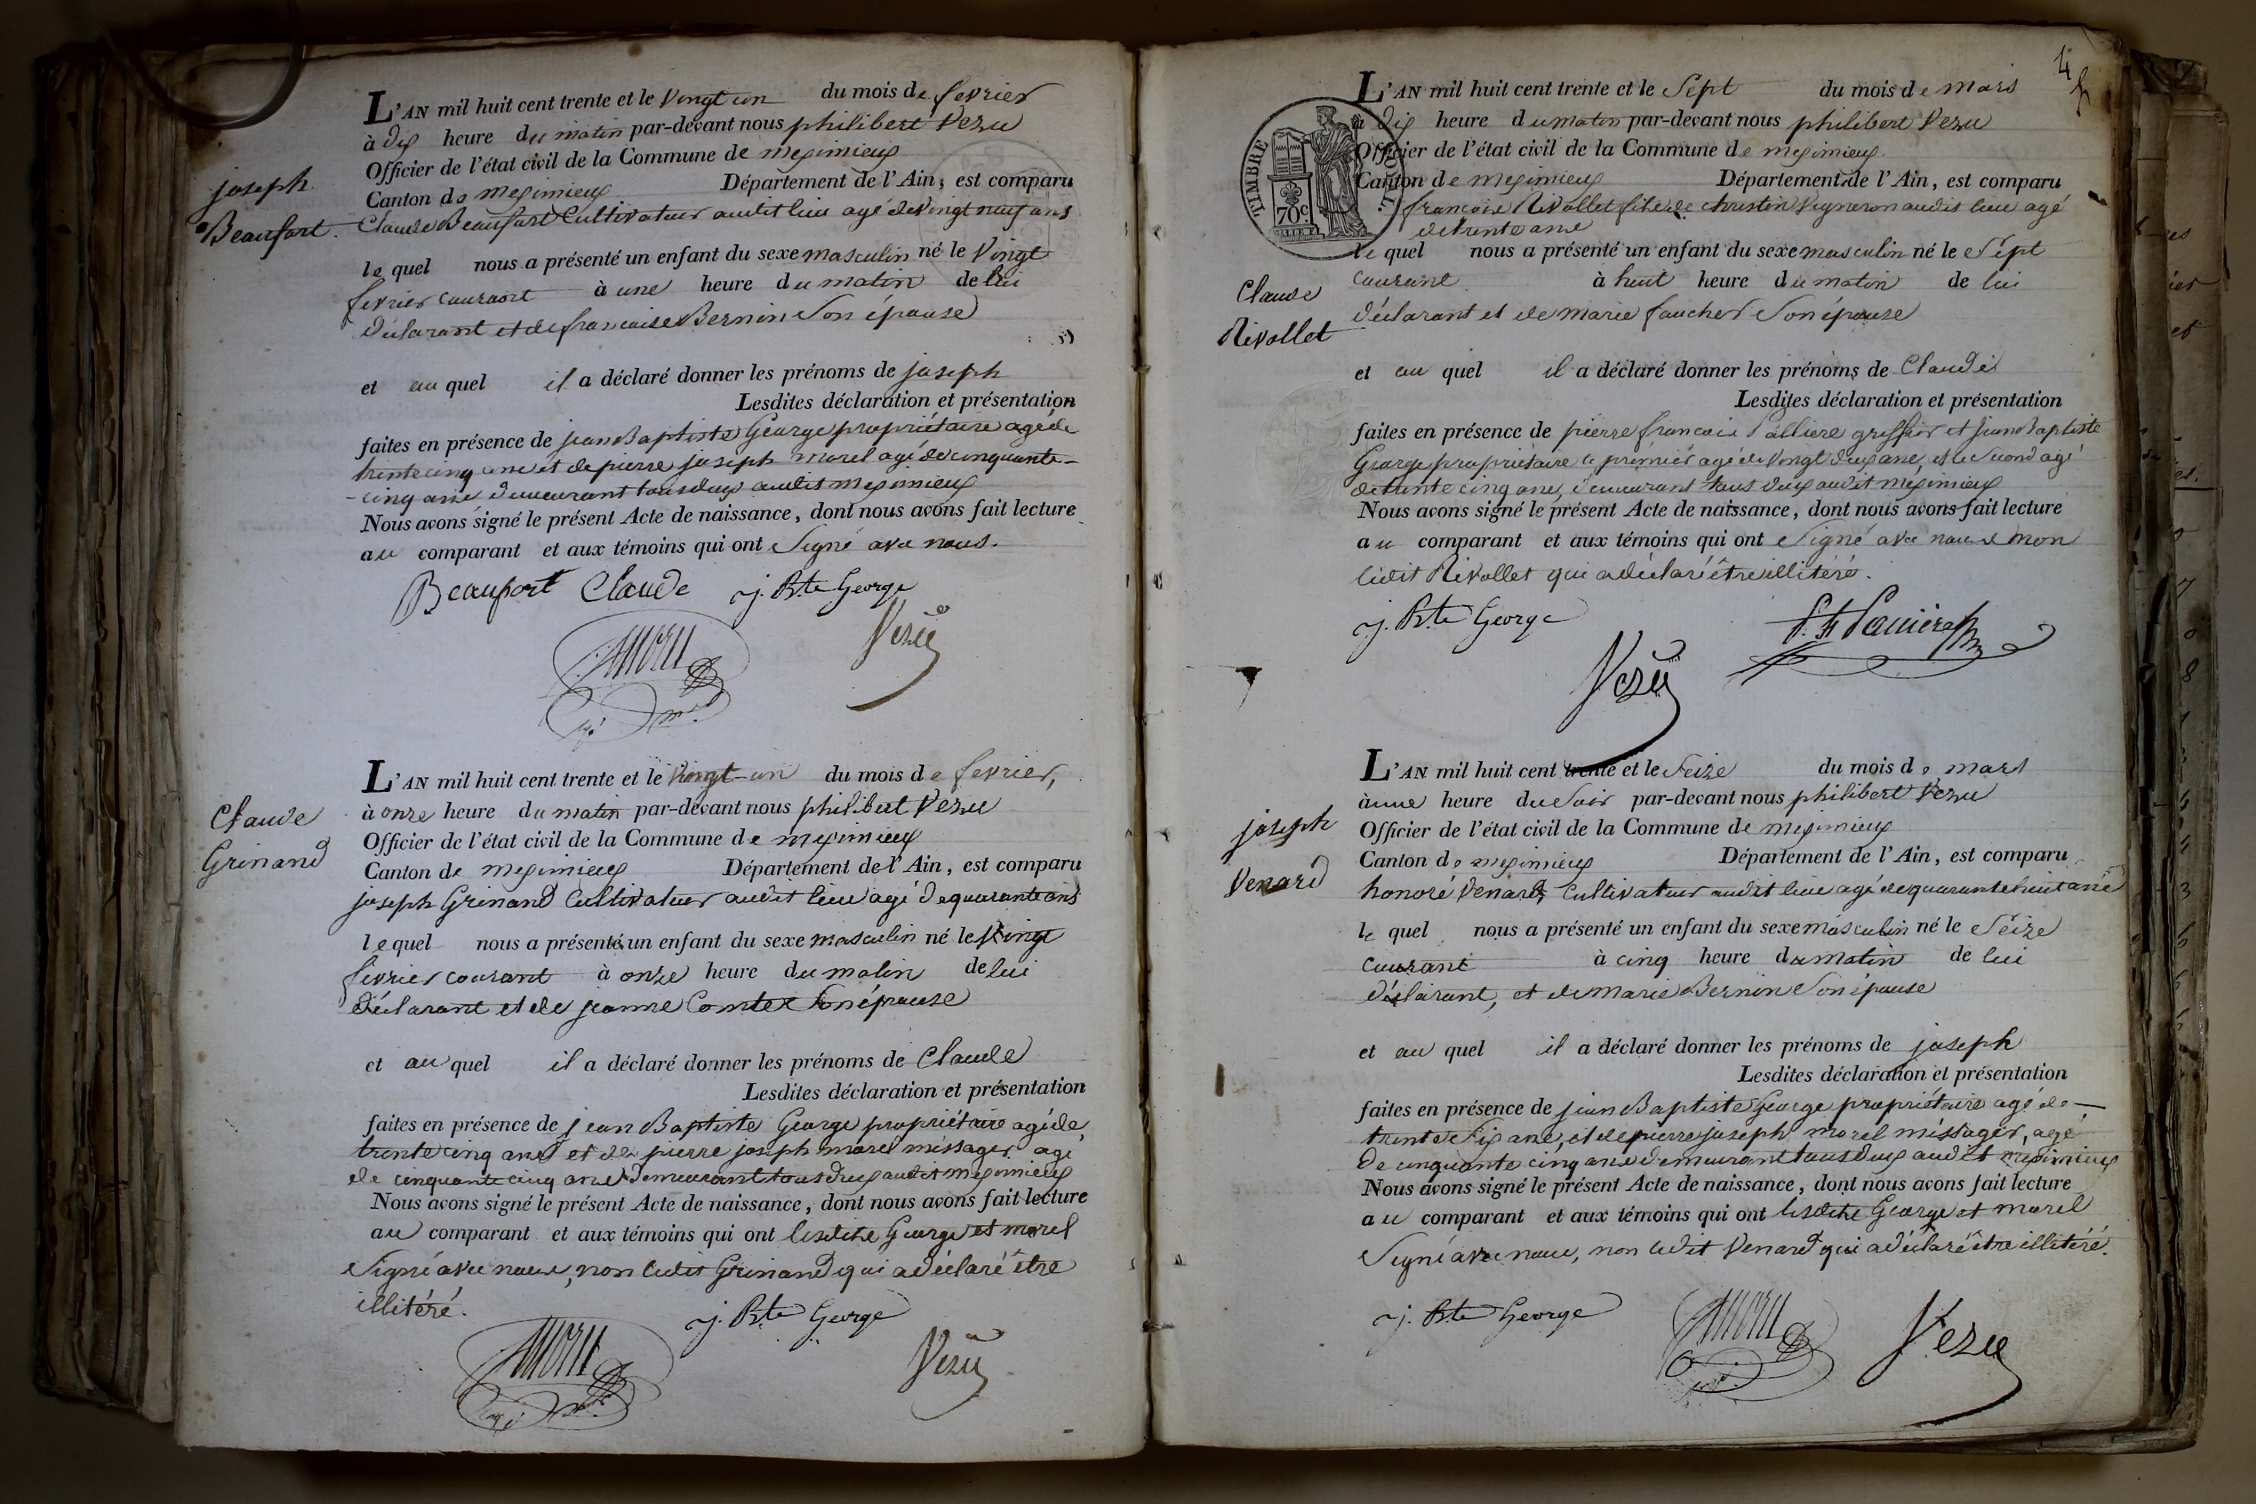 joseph
Beaufort.
L'AN mil huit cent trente et le vingt un du mois de fevrier
à dix heure du matin par-devant nous philibert Vezu
Officier de l'état civil de la Commune de meximieux
Canton de meximieux Département de l'Ain, est comparu
Claude Beaufort Cultivateur audit lieu agé de vingt neuf ans
le quel nous a présenté un enfant du sexe masculin né le vingt
fevrier courant à une heure du matin de lui
déclarant et de francoise Bernin son épouse
et au quel il a déclaré donner les prénoms de joseph
Lesdites déclaration et présentation
faites en présence de jean Baptiste George propriétaire agé de
trente cinq ans et de pierre joseph morel agé de cinquante-
-cinq ans demeurant tous deux audit meximieux
Nous avons signé le présent Acte de naissance, dont nous avons fait lecture
au comparant et aux témoins qui ont signé avec nous.
Beaufort Claude j. Bte George
Vezu
Claude
Grinand
L'AN mil huit cent trente et le vingt-un du mois de fevrier,
à onze heure du matin par-devant nous philibert Vezu
Officier de l'état civil de la Commune de meximieux
Canton de meximieux Département de l'Ain, est comparu
joseph Grinand Cultivateur audit lieu agé de quarante ans
le quel nous a présenté un enfant du sexe masculin né le vingt
fevrier courant à onze heure du matin de lui
déclarant et de jeanne Comte son épouse
et au quel il a déclaré donner les prénoms de Claude
Lesdites déclaration et présentation
faites en présence de jean Baptiste George propriétaire agé de
trente cinq ans et de pierre joseph morel méssager agé
de cinquante cinq ans demeurant tous deux audit meximieux
Nous avons signé le présent Acte de naissance, dont nous avons fait lecture
au comparant et aux témoins qui ont lesdits George et morel
signé avec nous, non ledit Grinand qui a déclaré être
illitéré.
j. Bte George
Vezu
4
TIMBRE ROYAL
70c.
Claude
Rivollet
L'AN mil huit cent trente et le sept du mois de mars
à dix heure du matin par-devant nous philibert Vezu
Officier de l'état civil de la Commune de meximieux
Canton de meximieux Département de l'Ain, est comparu
francois Rivollet fils de christin vigneron audit lieu agé
de trente ans
le quel nous a présenté un enfant du sexe masculin né le sept
courant à huit heure du matin de lui
déclarant et de marie faucher son épouse
et au quel il a déclaré donner les prénoms de Claude
Lesdites déclaration et présentation
faites en présence de pierre francois greffier et jean Baptiste
George propriétaire le premier agé de vingt deux ans, et le second agé
de trente cinq ans, demeurant tous deux audit meximieux
Nous avons signé le présent Acte de naissance, dont nous avons fait lecture
au comparant et aux témoins qui ont signé avec nous non
ledit Rivollet qui a déclaré être illitéré.
j. Bte George
Vezu
joseph
Venard
L'AN mil huit cent trente et le seize du mois de mars
à une heure du soir par-devant nous philibert Vezu
Officier de l'état civil de la Commune de meximieux
Canton de meximieux Département de l'Ain, est comparu
honoré Venard Cultivateur audit lieu agé de quarante huit ans
le quel nous a présenté un enfant du sexe masculin né le seize
courant à cinq heure du matin de lui
déclarant, et de marie Bernin son épouse
et au quel il a déclaré donner les prénoms de joseph
Lesdites déclaration et présentation
faites en présence de jean Baptiste George propriétaire agé de
trente six ans, et de pierre joseph morel méssager, agé
de cinquante cinq ans demeurant tous deux audit meximieux
Nous avons signé le présent Acte de naissance, dont nous avons fait lecture
au comparant et aux témoins qui ont lesdits George et morel
signé avec nous, non ledit Venard qui a déclaré être illitéré.
j. Bte George
Vezu